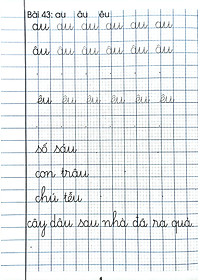 Bài 43: au âu êu
au au au au au au
âu âu âu âu âu âu
êu êu êu êu êu êu
số sáu
con trâu
chú tễu
cây dâu sau nhà đã ra quả.